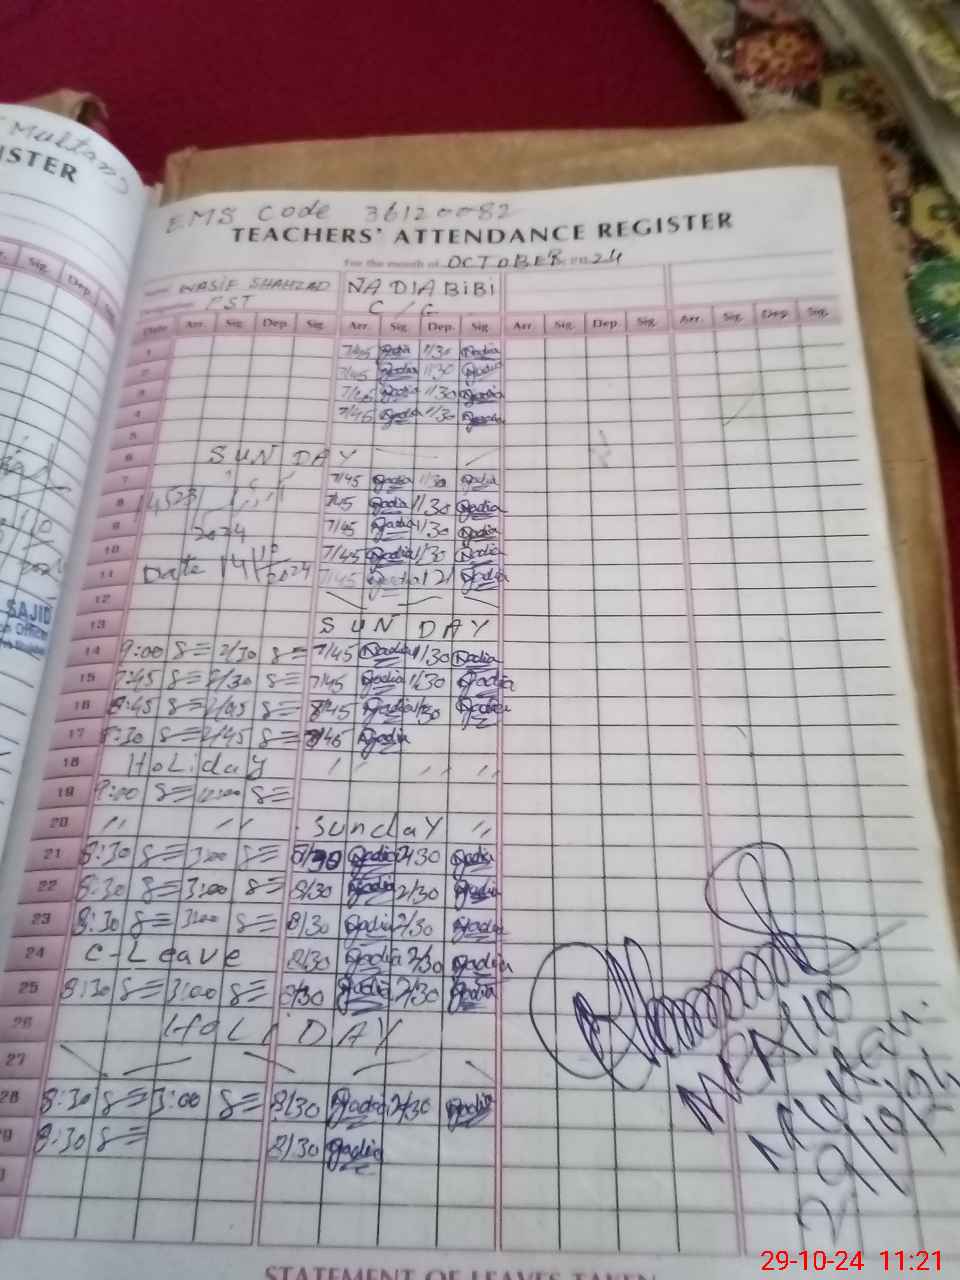 Multan
ISTER
Sig. Dep.
SAJID
EMS Code 36120082
TEACHERS' ATTENDANCE REGISTER
For the month of OCTOBER 2024
Name WASIF SHAHZAD NADIA BIBI
Designation PST C/C
Date Arr. Sig. Dep. Sig. Arr. Sig. Dep. Sig. Arr. Sig. Dep. Sig. Arr. Sig. Dep. Sig.
1 7/45 Nadia 1/30 Nadia
2 7/45 Nadia 1/30 Nadia
3 7/45 Nadia 1/30 Nadia
4 7/45 Nadia 1/30 Nadia
5
6 SUNDAY
7 7/45 Nadia 1/30 Nadia
8 7/45 Nadia 1/30 Nadia
9 2024 7/45 Nadia 1/30 Nadia
10 7/45 Nadia 1/30 Nadia
11 Date 14/10/2024 7/45 Nadia Nadia
12
13 SUNDAY
14 9:00 2/30 7/45 Nadia 1/30 Nadia
15 7:45 2/30 7/45 Nadia 1/30 Nadia
16 8:45 2/45 8/45 Nadia 1/30 Nadia
17 8:30 2/45 8/45 Nadia
18 Holiday " " "
19 9:00 12:00
20 " " Sunday "
21 8:30 3:00 8/30 Nadia 2/30 Nadia
22 8:30 3:00 8/30 Nadia 2/30 Nadia
23 8:30 3:00 8/30 Nadia 2/30 Nadia
24 C-Leave 8/30 Nadia 2/30 Nadia
25 8:30 3:00 8/30 Nadia 2/30 Nadia
26 HOLIDAY
27
28 8:30 3:00 8/30 Nadia 2/30 Nadia
29 8:30 8/30 Nadia
29/10/24
STATEMENT OF LEAVES TAKEN
29-10-24 11:21